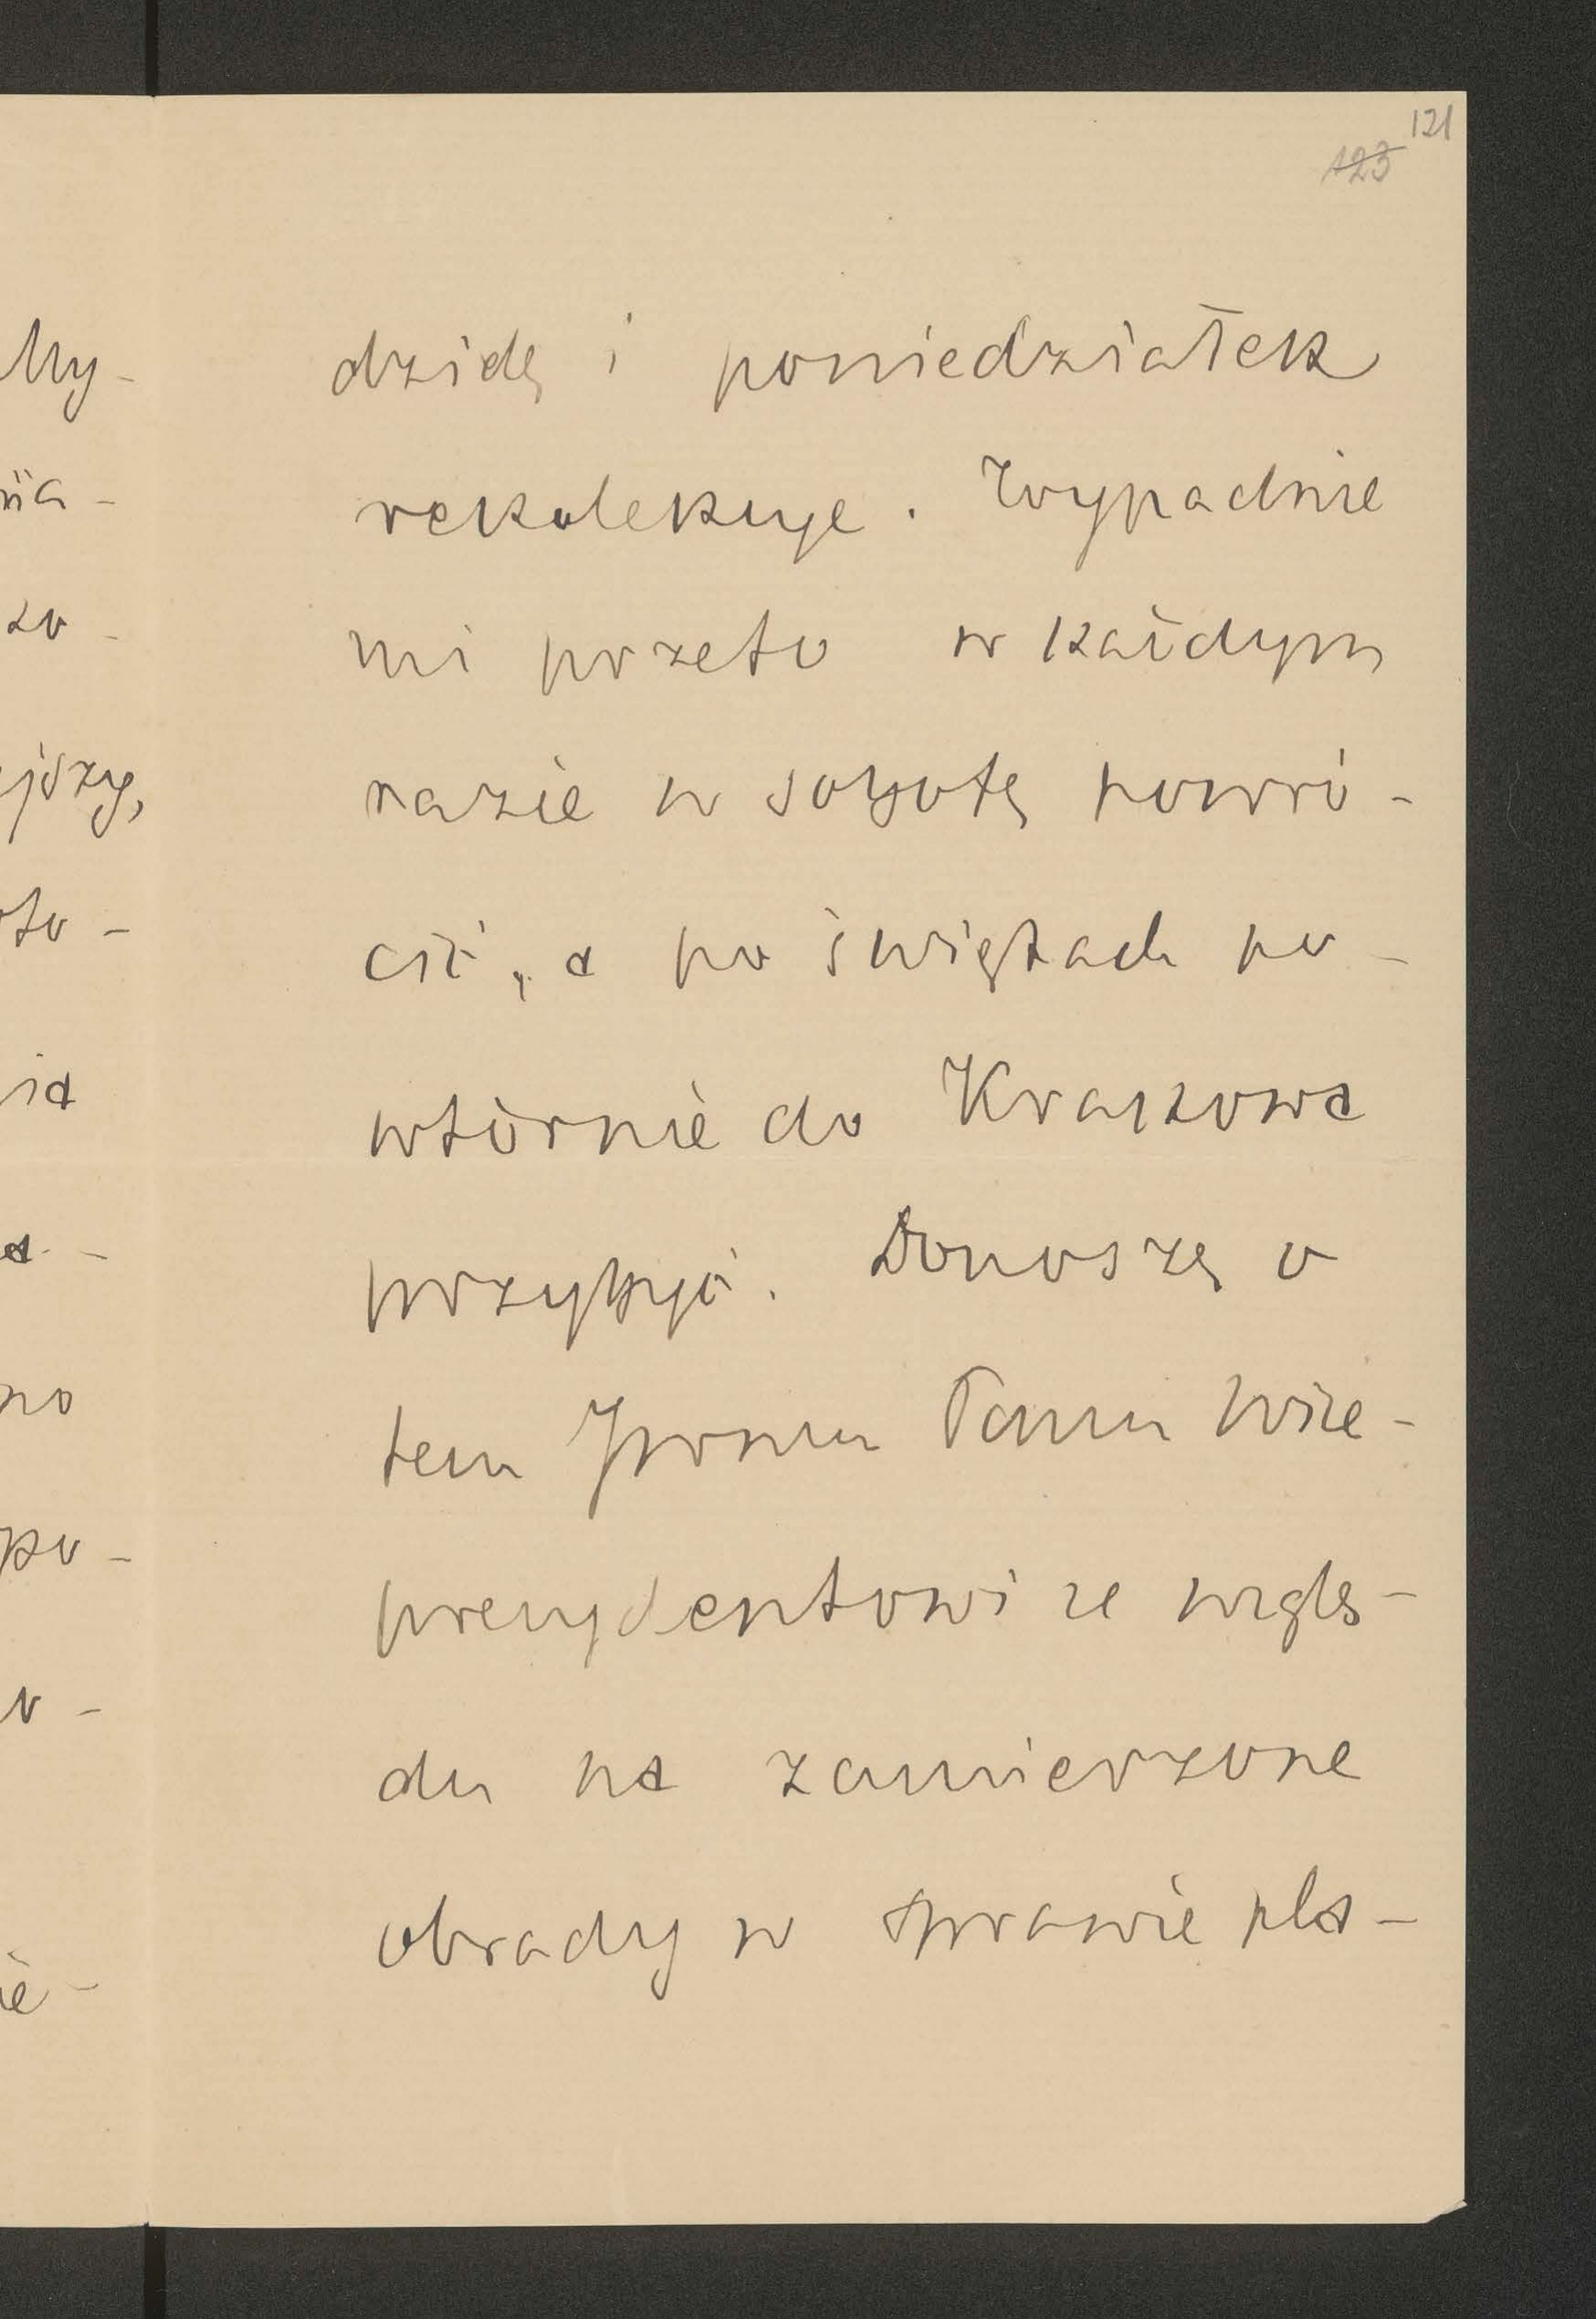 121
123
My-
ńa-
zo-
jszy,
oto-
ia
a-
no
po-
o-
ie-
dzielę i poniedziałek
rekolekuje. Wypadnie
mi przeto w każdym
razie w sobotę powró-
cić, a po świętach po-
wtórnie do Krakowa
przybyć. Donoszę o
tem JWPanu Wice-
prezydentowi ze wzglę-
du na zamierzone
obrady w sprawie pla-